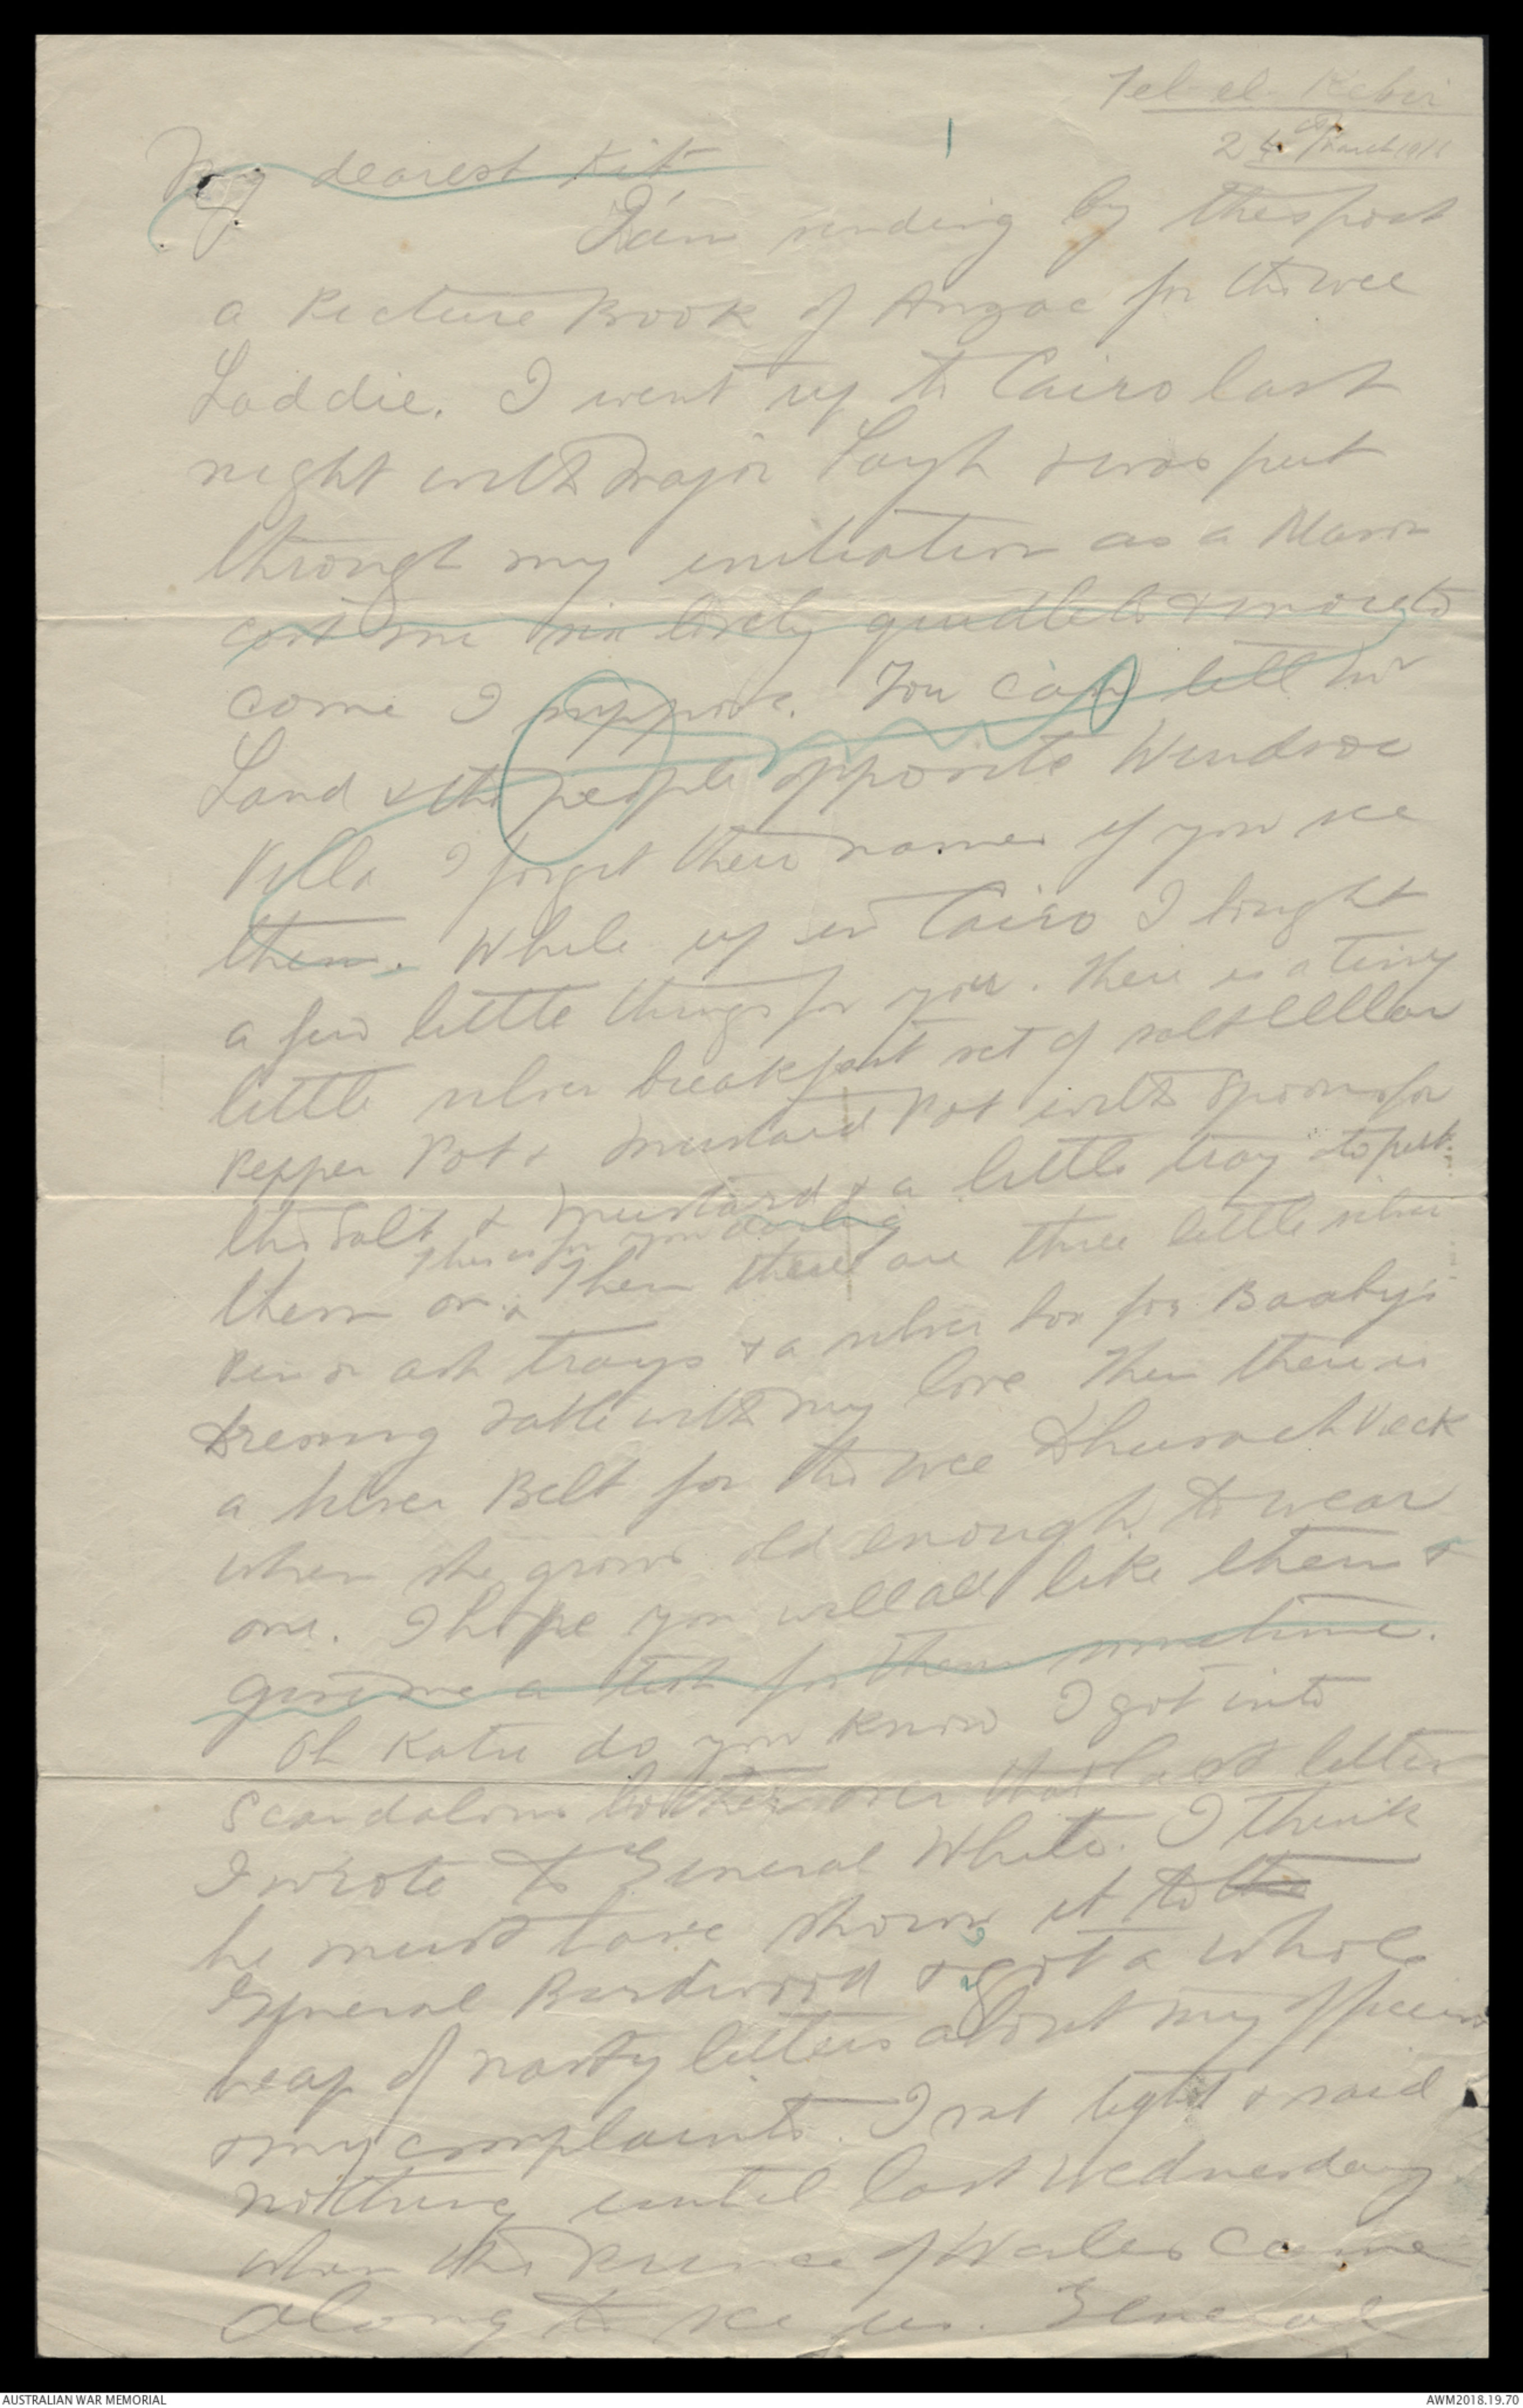 Tel-el-Kebir
March 1916
1
My dearest Kit
I'm sending by this post
a Picture Book of Anzac for the wee
Laddie. I went up to Cairo last
night with Major Layh & was put
through my initiation as a Mason
cost me six lovely quidlets & more to
come I suppose. You can tell Mr
Land & the people opposite Windsor
Villa I forget their names if you see
them. While up in Cairo I bought
a few little things for you. There is a tiny
little silver breakfast set of salt cellar
Pepper Pot & Mustard Pot with spoons for
the Salt & Mustard & a little tray to put
This is for you darling
them on & Then there are three little silver
Pin or ash trays & a silver box for Baaby's
dressing table with my love Then there is
a silver Belt for the wee
when she grows old enough to wear
one. I hope you will all like them &
give me a for them sometime.
Oh Katie do you know I got into
Scandalous bother over that last letter
I wrote to General White. I think
he must have shown it to the
General Birdwood & got a whole
heap of nasty letters about my officers
& my complaints. I sat tight & said
nothing until last Wednesday
when the Prince of Wales came
along to see us. General
AUSTRALIAN WAR MEMORIAL
AWM2018.19.70